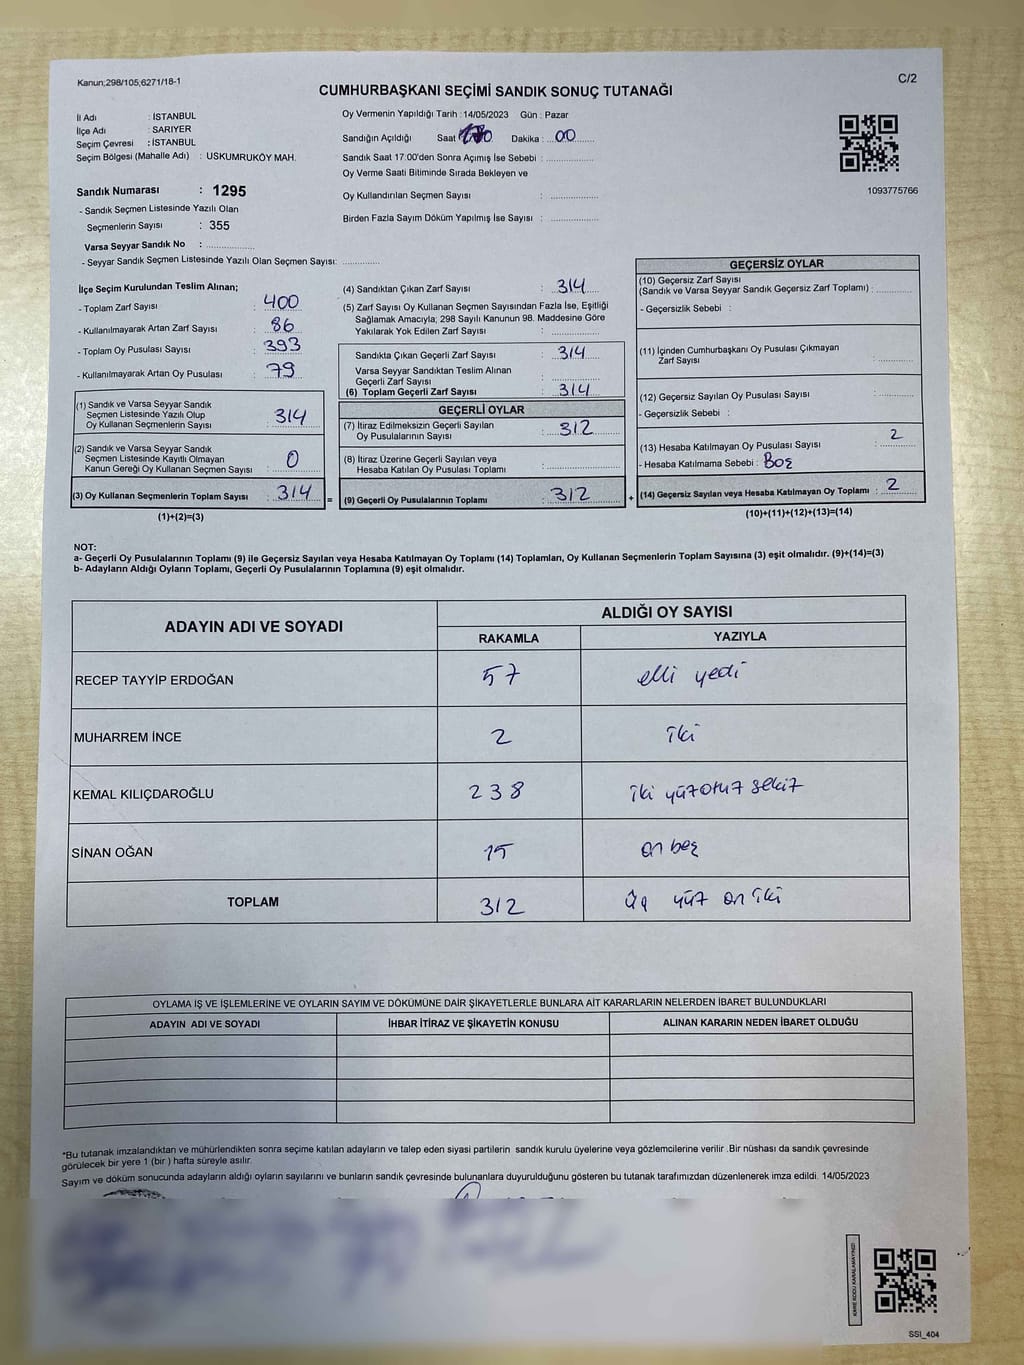 Kanun;298/105;6271/18-1
C/2
CUMHURBAŞKANI SEÇİMİ SANDIK SONUÇ TUTANAĞI
İl Adı : İSTANBUL
İlçe Adı : SARIYER
Seçim Çevresi : İSTANBUL
Seçim Bölgesi (Mahalle Adı) : USKUMRUKÖY MAH.
Sandık Numarası : 1295
- Sandık Seçmen Listesinde Yazılı Olan
Seçmenlerin Sayısı : 355
Varsa Seyyar Sandık No :
- Seyyar Sandık Seçmen Listesinde Yazılı Olan Seçmen Sayısı:
Oy Vermenin Yapıldığı Tarih :14/05/2023 Gün : Pazar
Sandığın Açıldığı Saat Dakika : 00
Sandık Saat 17:00'den Sonra Açılmış İse Sebebi :
Oy Verme Saati Bitiminde Sırada Bekleyen ve
Oy Kullandırılan Seçmen Sayısı :
Birden Fazla Sayım Döküm Yapılmış İse Sayısı :
1093775766
İlçe Seçim Kurulundan Teslim Alınan;
- Toplam Zarf Sayısı : 400
- Kullanılmayarak Artan Zarf Sayısı : 86
- Toplam Oy Pusulası Sayısı : 393
- Kullanılmayarak Artan Oy Pusulası : 79
(1) Sandık ve Varsa Seyyar Sandık
Seçmen Listesinde Yazılı Olup
Oy Kullanan Seçmenlerin Sayısı : 314
(2) Sandık ve Varsa Seyyar Sandık
Seçmen Listesinde Kayıtlı Olmayan
Kanun Gereği Oy Kullanan Seçmen Sayısı : 0
(3) Oy Kullanan Seçmenlerin Toplam Sayısı : 314 =
(1)+(2)=(3)
(4) Sandıktan Çıkan Zarf Sayısı : 314
(5) Zarf Sayısı Oy Kullanan Seçmen Sayısından Fazla İse, Eşitliği
Sağlamak Amacıyla; 298 Sayılı Kanunun 98. Maddesine Göre
Yakılarak Yok Edilen Zarf Sayısı :
Sandıkta Çıkan Geçerli Zarf Sayısı : 314
Varsa Seyyar Sandıktan Teslim Alınan
Geçerli Zarf Sayısı :
(6) Toplam Geçerli Zarf Sayısı : 314
GEÇERLİ OYLAR
(7) İtiraz Edilmeksizin Geçerli Sayılan
Oy Pusulalarının Sayısı : 312
(8) İtiraz Üzerine Geçerli Sayılan veya
Hesaba Katılan Oy Pusulası Toplamı :
(9) Geçerli Oy Pusulalarının Toplamı : 312 +
GEÇERSİZ OYLAR
(10) Geçersiz Zarf Sayısı
(Sandık ve Varsa Seyyar Sandık Geçersiz Zarf Toplamı) :
- Geçersizlik Sebebi :
(11) İçinden Cumhurbaşkanı Oy Pusulası Çıkmayan
Zarf Sayısı :
(12) Geçersiz Sayılan Oy Pusulası Sayısı :
- Geçersizlik Sebebi :
(13) Hesaba Katılmayan Oy Pusulası Sayısı : 2
- Hesaba Katılmama Sebebi : Boş
(14) Geçersiz Sayılan veya Hesaba Katılmayan Oy Toplamı : 2
(10)+(11)+(12)+(13)=(14)
NOT:
a- Geçerli Oy Pusulalarının Toplamı (9) ile Geçersiz Sayılan veya Hesaba Katılmayan Oy Toplamı (14) Toplamları, Oy Kullanan Seçmenlerin Toplam Sayısına (3) eşit olmalıdır. (9)+(14)=(3)
b- Adayların Aldığı Oyların Toplamı, Geçerli Oy Pusulalarının Toplamına (9) eşit olmalıdır.
ADAYIN ADI VE SOYADI
ALDIĞI OY SAYISI
RAKAMLA YAZIYLA
RECEP TAYYİP ERDOĞAN 57 elli yedi
MUHARREM İNCE 2 iki
KEMAL KILIÇDAROĞLU 238 iki yüz otuz sekiz
SİNAN OĞAN 15 on beş
TOPLAM 312 üç yüz on iki
OYLAMA İŞ VE İŞLEMLERİNE VE OYLARIN SAYIM VE DÖKÜMÜNE DAİR ŞİKAYETLERLE BUNLARA AİT KARARLARIN NELERDEN İBARET BULUNDUKLARI
ADAYIN ADI VE SOYADI İHBAR İTİRAZ VE ŞİKAYETİN KONUSU ALINAN KARARIN NEDEN İBARET OLDUĞU
*Bu tutanak imzalandıktan ve mühürlendikten sonra seçime katılan adayların ve talep eden siyasi partilerin sandık kurulu üyelerine veya gözlemcilerine verilir. Bir nüshası da sandık çevresinde
görülecek bir yere 1 (bir ) hafta süreyle asılır.
Sayım ve döküm sonucunda adayların aldığı oyların sayılarını ve bunların sandık çevresinde bulunanlara duyurulduğunu gösteren bu tutanak tarafımızdan düzenlenerek imza edildi. 14/05/2023
KARE KODU KARALAMAYINIZ!
SSI_404